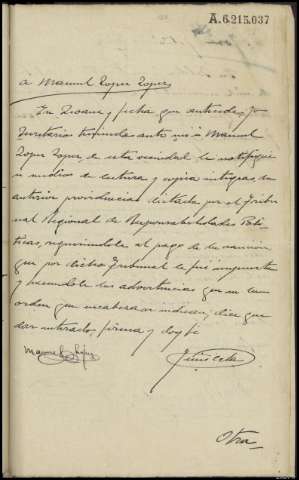 A.6.215.037
á Manuel Lopez Lopez
En Seoane y fecha que antecede, yo
Secretario teniendo ante mi á Manuel
Lopez Lopez, de esta vecindad le notifiqué
en medios de lectura y copia integras la
anterior providencia dictada por el Tribu
nal Regional de Responsabilidades Polí
ticas, requiriendole al pago de la sancion
que por dicho Tribunal le fué impuesta
y haciendole las advertencias que en la
orden que encabeza se indican; dice que
dar enterado, firma y doy fé
Manuel López
Otra